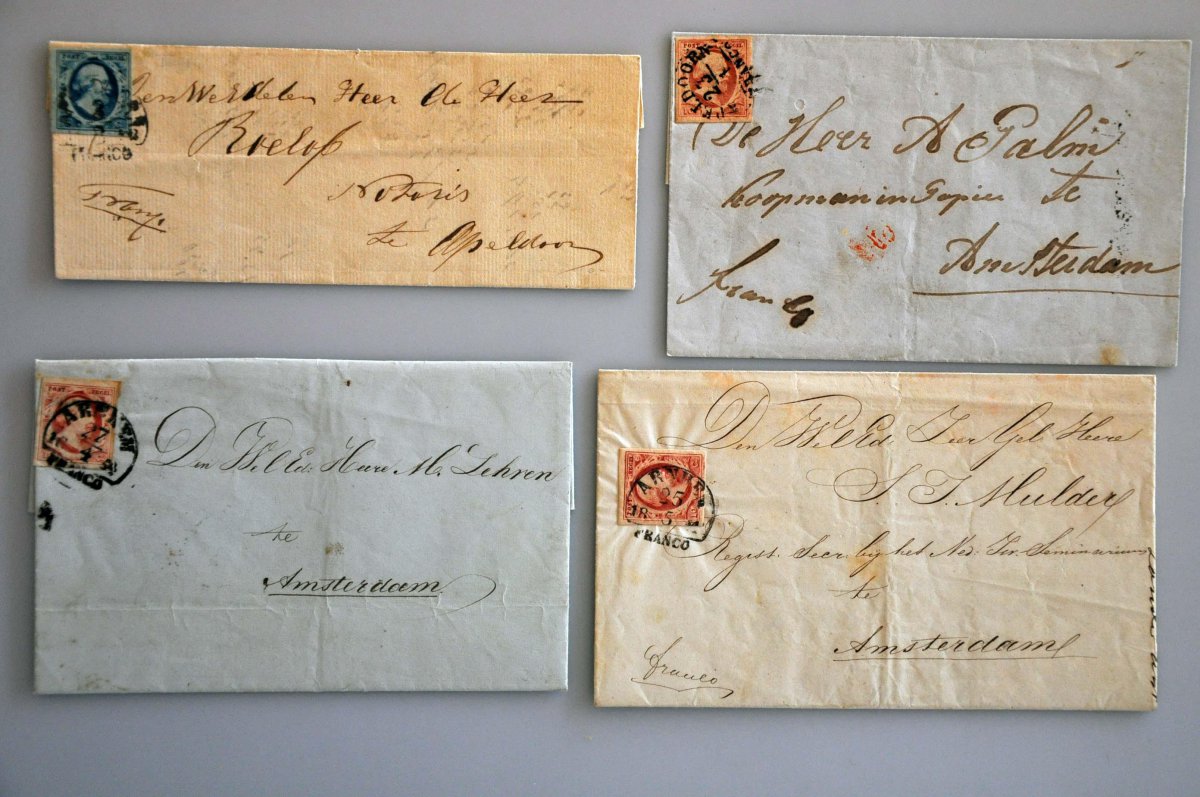 FRANCO
WelEdelen Heer de Heer
Roelofs
Notaris
te Apeldoorn
POST ZEGEL
De Heer A Palm
Koopman in Papier te
Amsterdam
franco
POST ZEGEL
ARNHEM
27
4
FRANCO
Den WelEd: Heere M. Lehren
te
Amsterdam
ARNHEM
25
18 5
FRANCO
Den WelEd. Zeer Gel. Heere
S. I. Mulder
Regist. Secr. bij het Ned. Isr. Seminarium
te
Amsterdam
franco